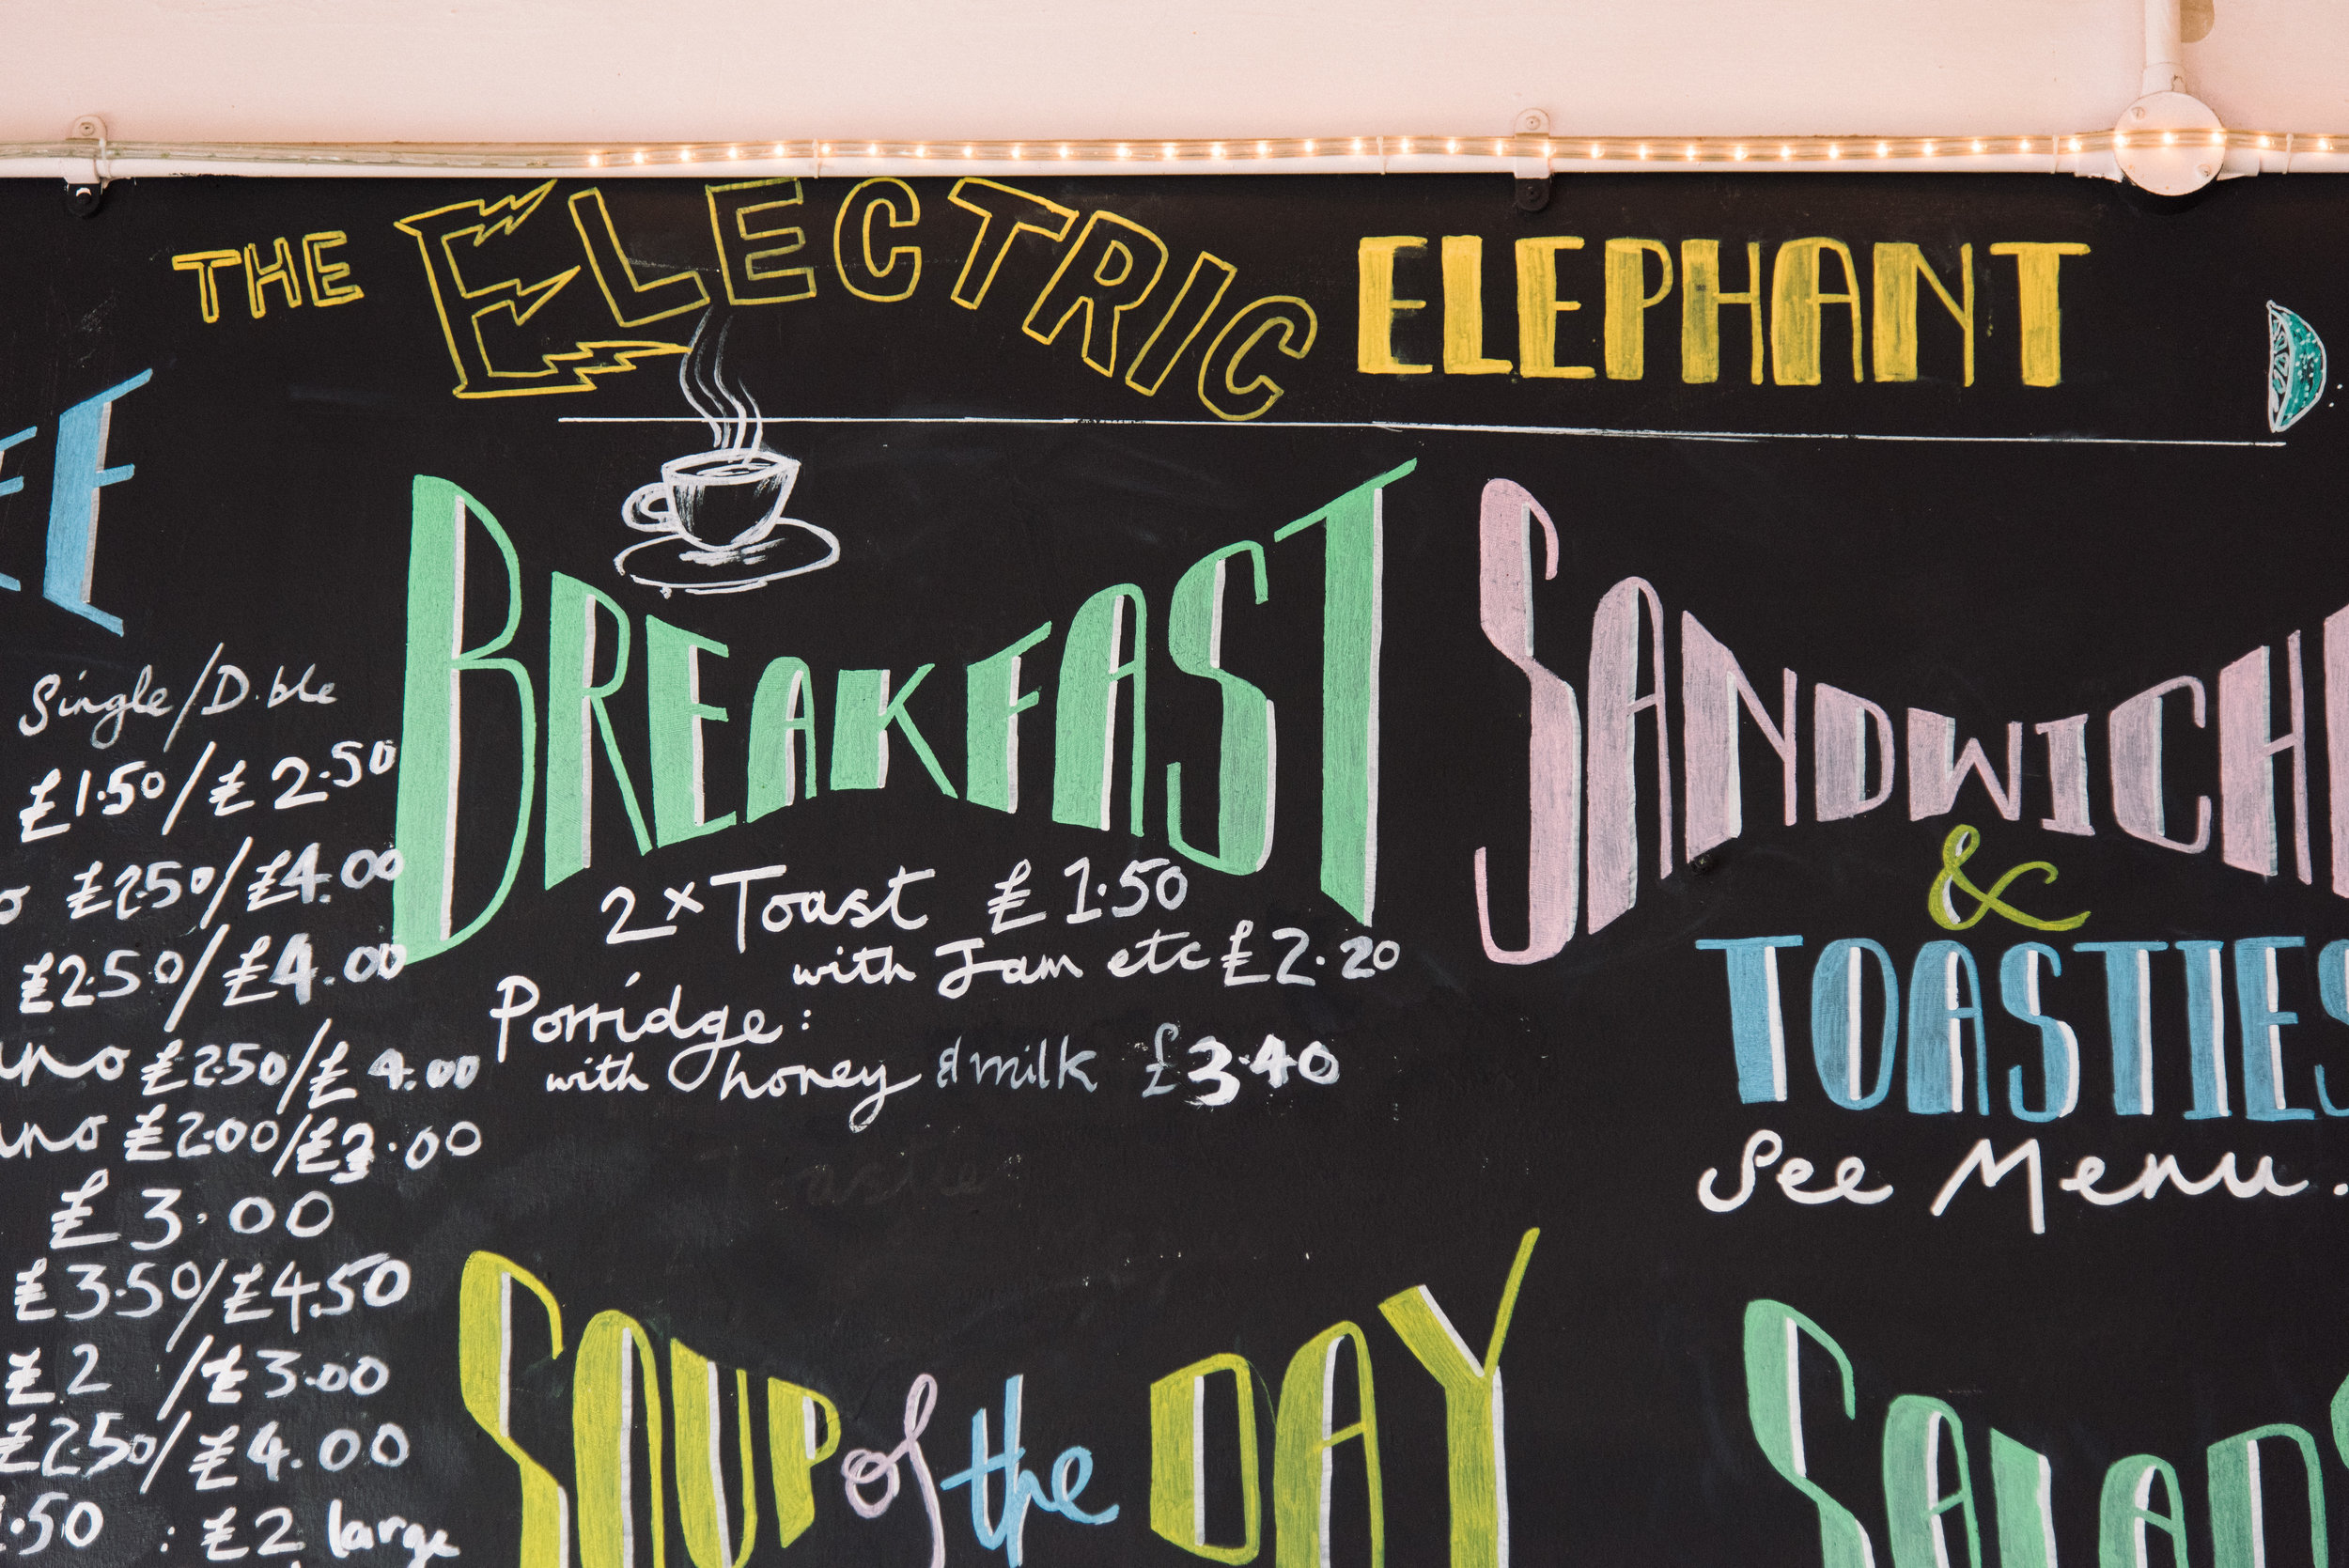 THE ELECTRIC ELEPHANT
Single/D.ble
£1.50/£2.50
£2.50/£4.00
£2.50/£4.00
£2.50/£4.00
£2.00/£3.00
£3.00
£3.50/£4.50
£2 /£3.00
£2.50/£4.00
: £2 large
BREAKFAST
2x Toast £1.50
with Jam etc £2.20
Porridge:
with honey & milk £3.40
SOUP of the DAY
SANDWICH
&
TOASTIES
See Menu.
SALADS